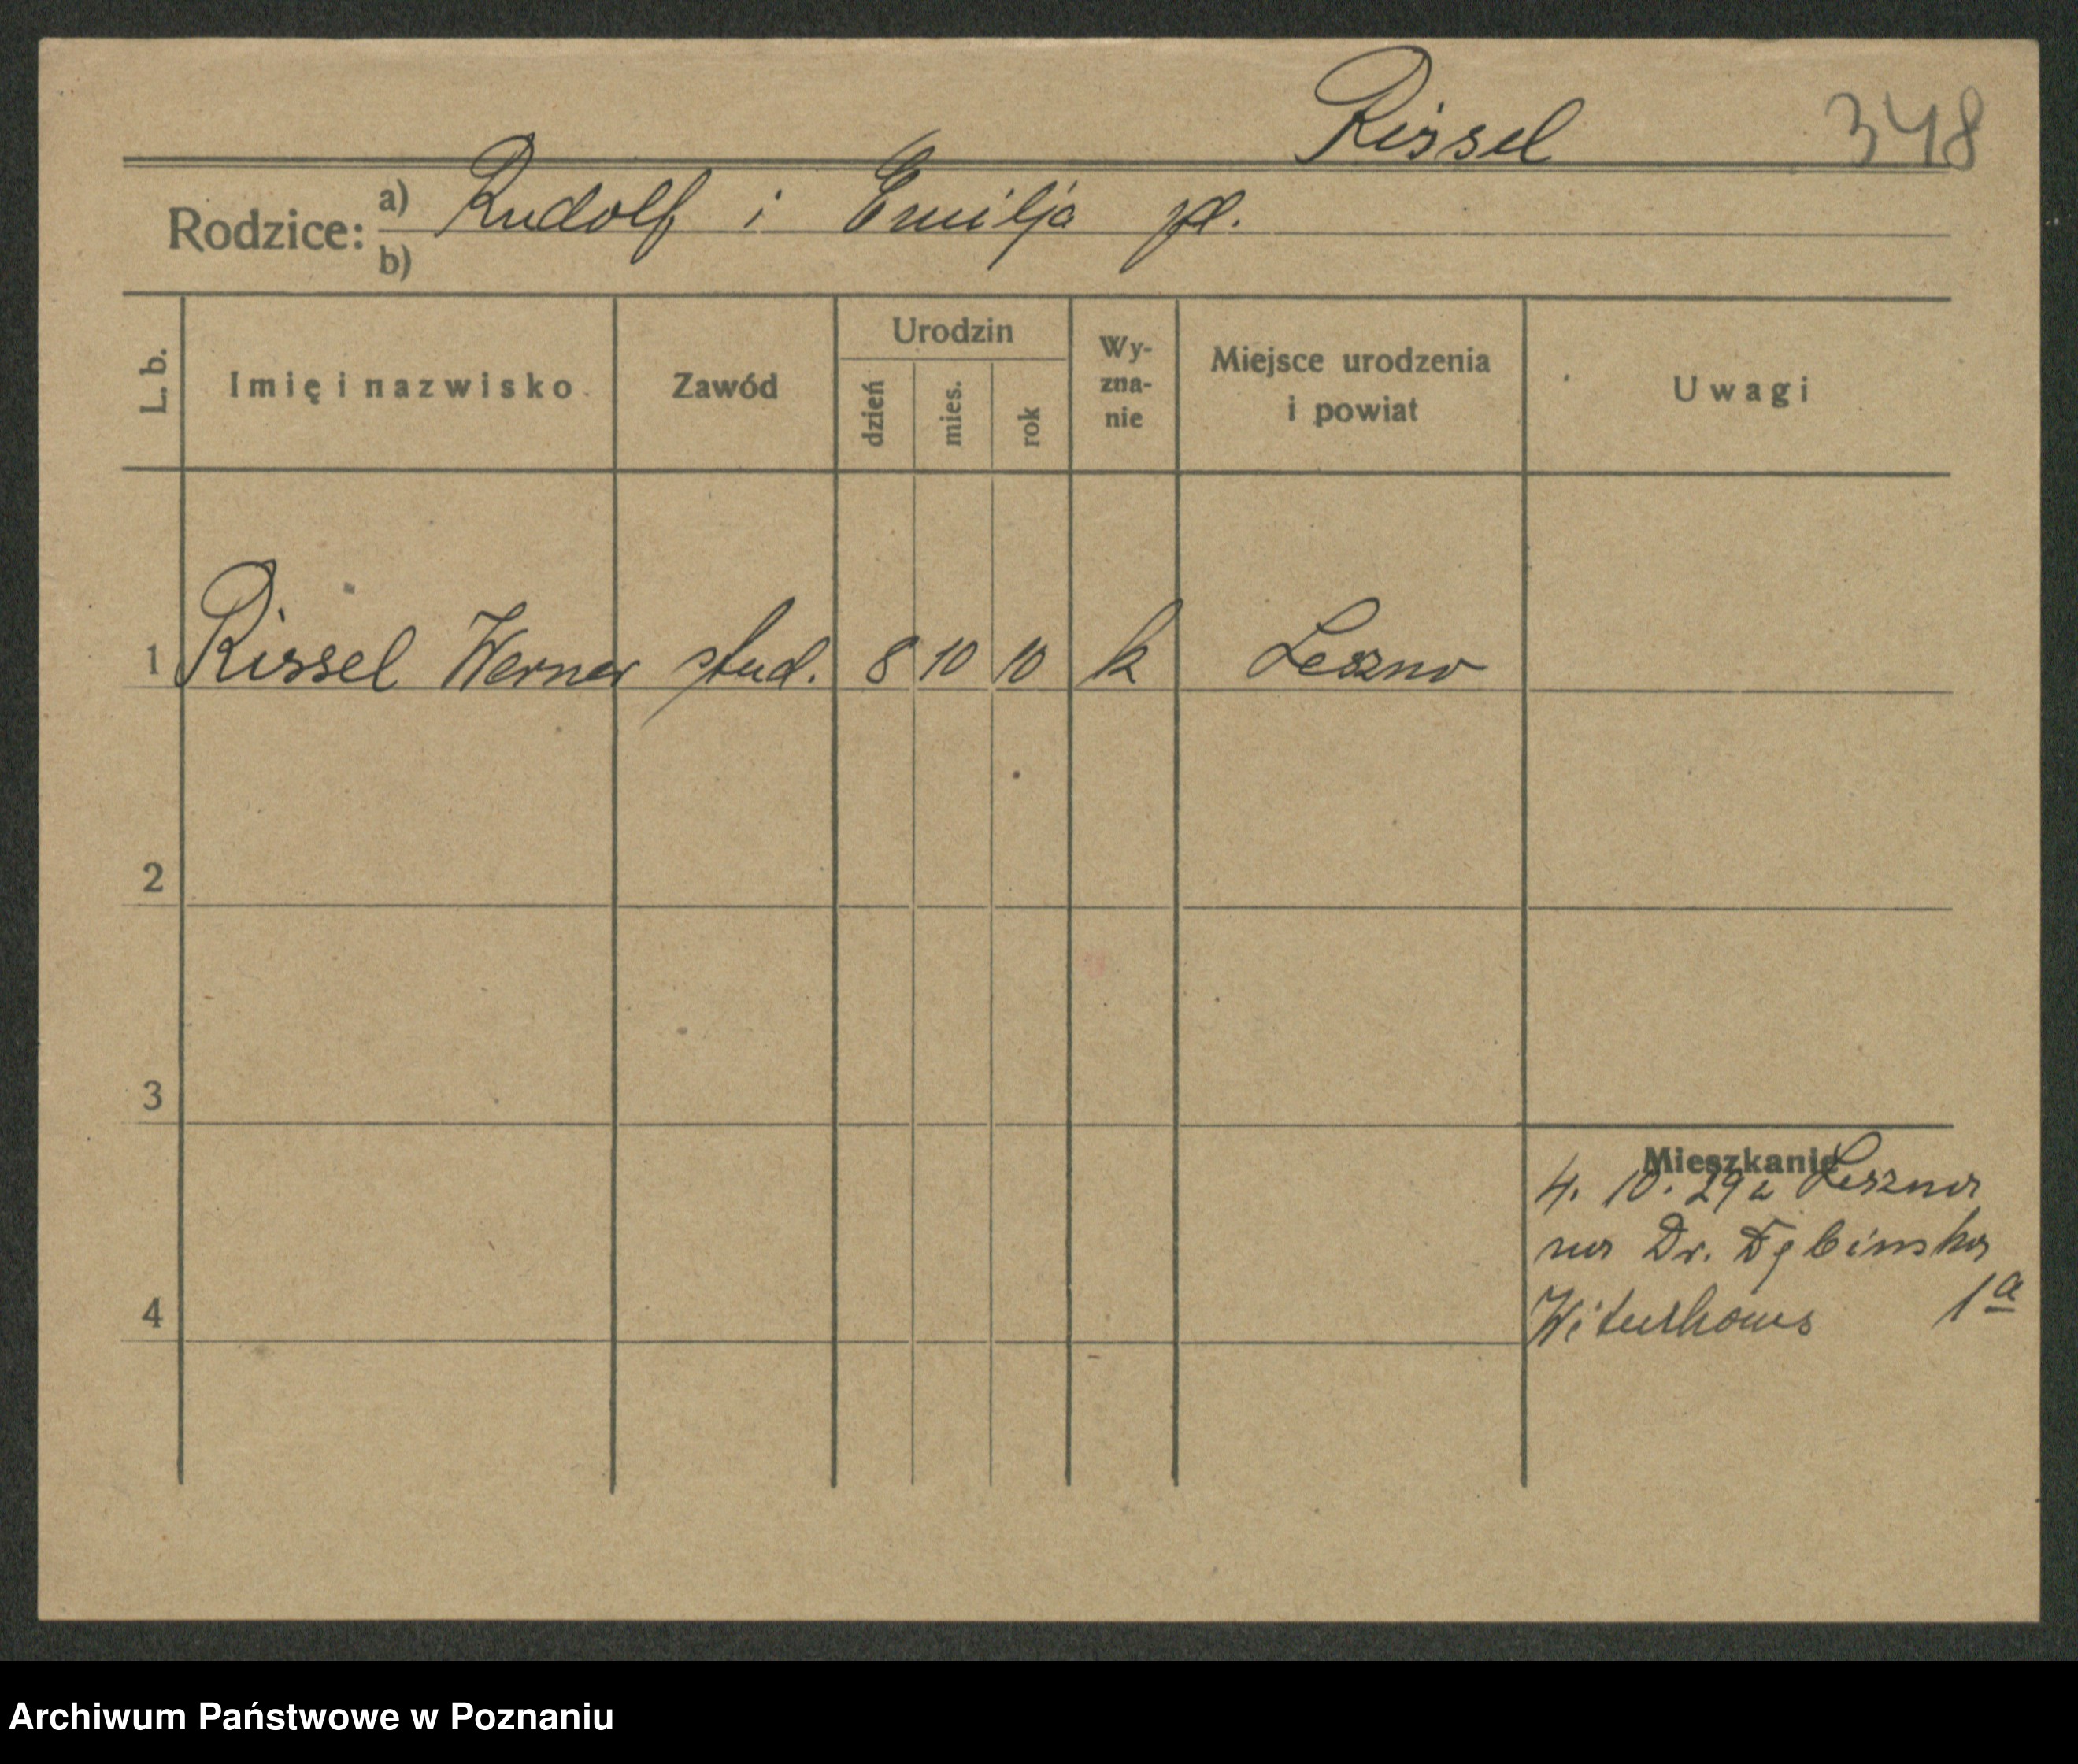 Rissel 348
Rodzice: a) Rudolf i Emilja
b)
L. b. Imię i nazwisko Zawód Urodzin dzień mies. rok Wy-zna-nie Miejsce urodzenia i powiat Uwagi
1 Rissel Werner stud. 8 10 10 k Leszno
2
3
Mieszkanie
4. 10. 29 z Leszna
na Dr. Dębińska
4 1a
Archiwum Państwowe w Poznaniu